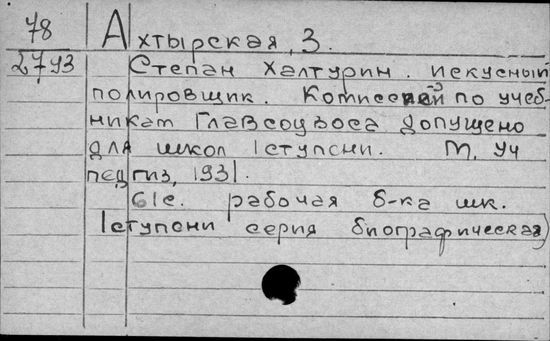 78 Ахтырская, З.
2793 Степан Халтурин. искусный
полировщик. Комиссией по учеб-
никам Главсоцвоса допущено
для школ I ступени. М, Уч
педгиз, 1931.
61с. рабочая б-ка шк.
I ступени серия биографическая)